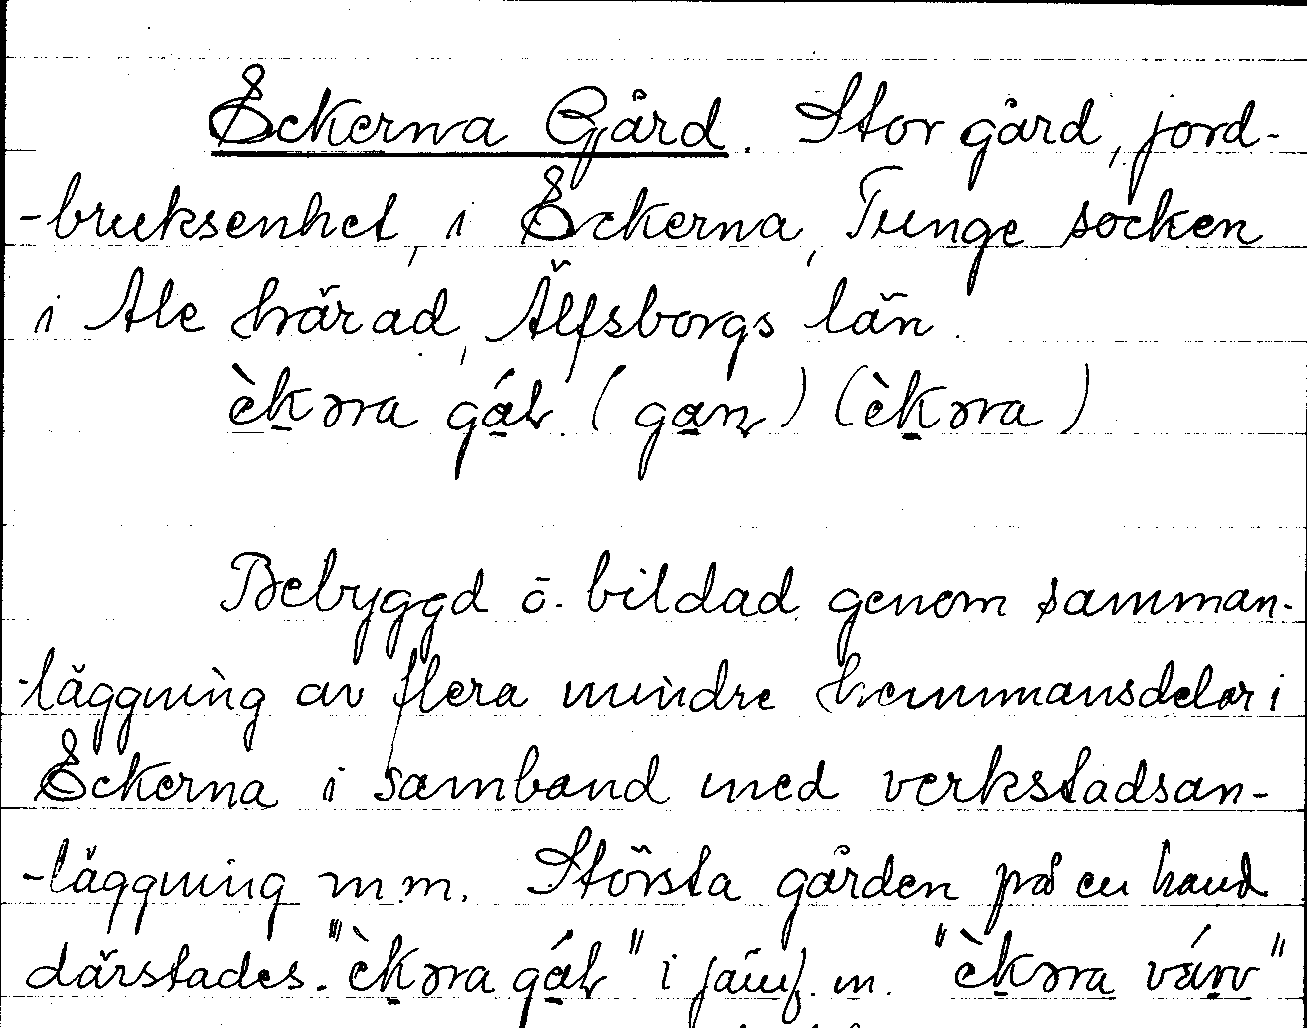 Eckerna Gård. Stor gård, jord-
-bruksenhet, i Eckerna, Tunge socken
i Ale härad, Älfsborgs län.
èkɔrna gáɫ. (gan) (èkɔrna)
Bebyggd o. bildad genom samman-
-läggning av flera mindre hemmansdelar i
Eckerna i samband med verkstadsan-
-läggning m.m. Största gården på en hand
därstades. "èkɔrna gáɫ" i jämf. m. "èkɔrna várv"